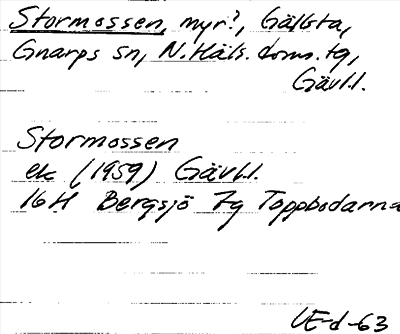 Stormossen, myr?, Gälsta,
Gnarps sn, N. Häls. doms.tg,
Gävl.l.
Stormossen
ek (1959) Gävl.l.
16H Bergsjö 7g Toppbodarna
UE-d-63